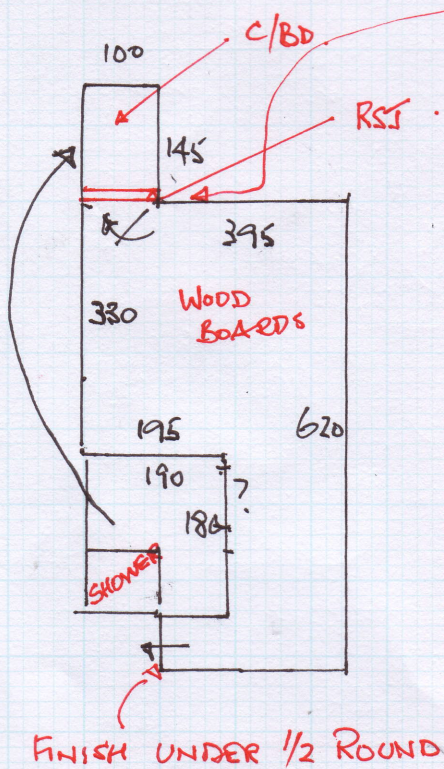 C/BD
100
RSJ
145
395
330
WOOD
BOARDS
195
620
190
?
180
SHOWER
FINISH UNDER 1/2 ROUND